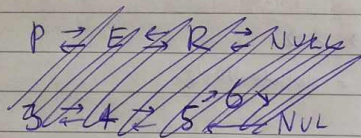 P ⇄ E ⇆ R ⇄ NULL
3 ⇄ 4 ⇄ 5 6 NUL